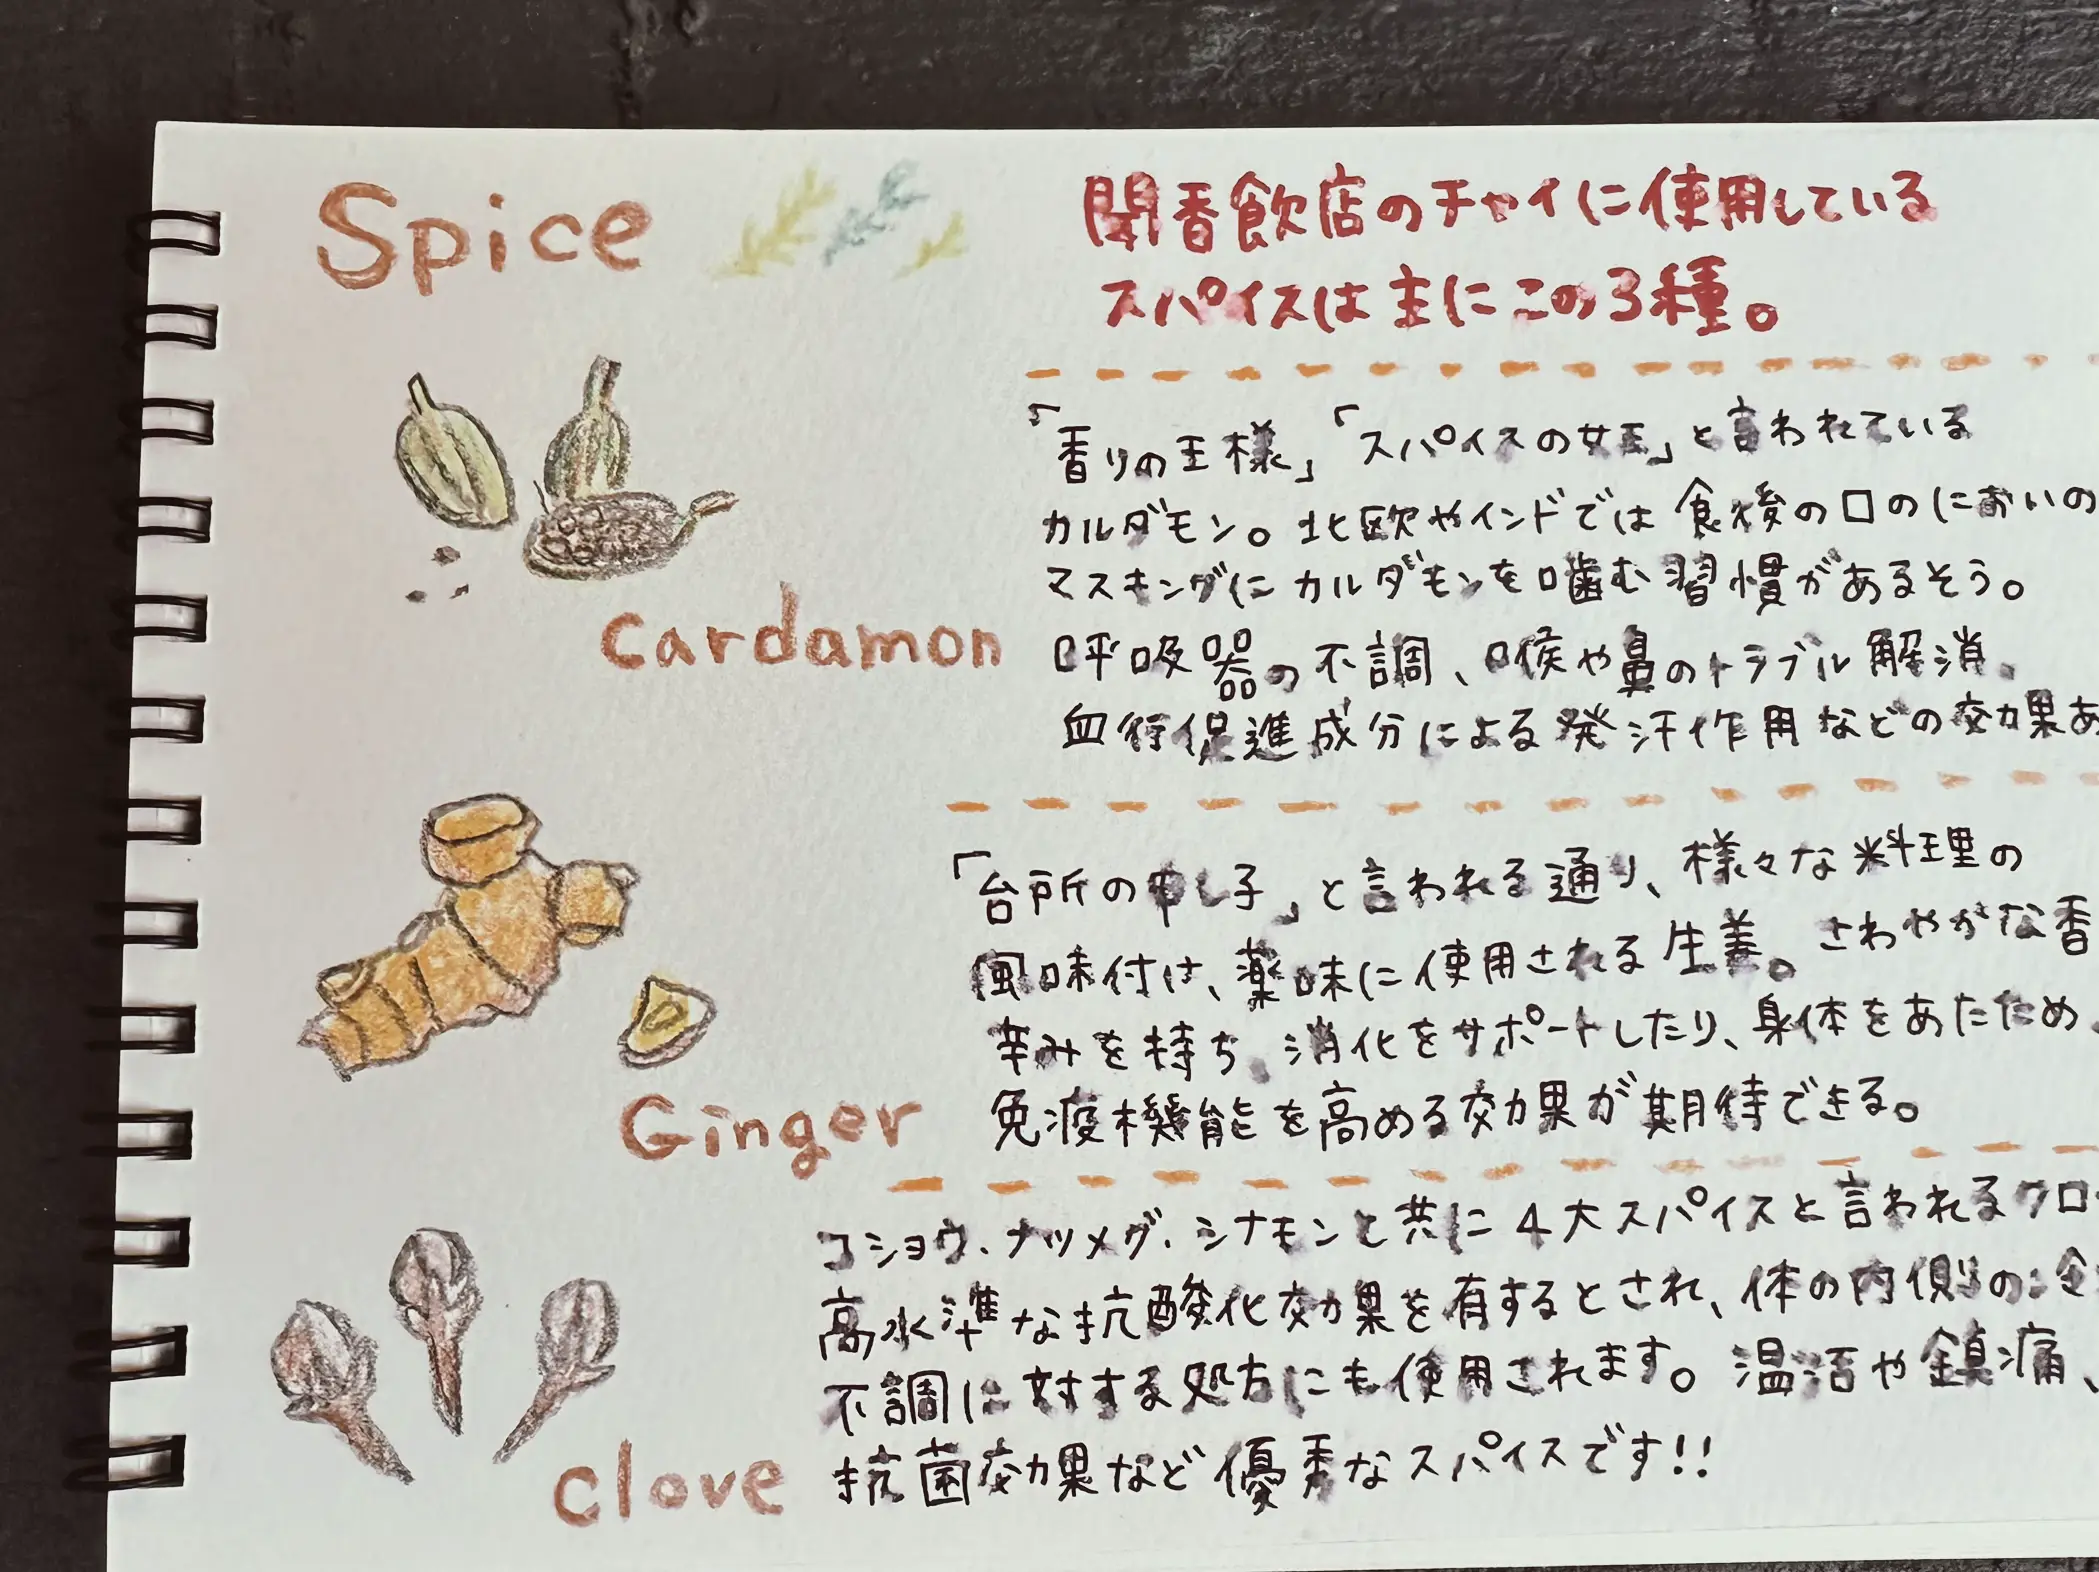 Spice
開香飲店のチャイに使用している
スパイスは主にこの3種。
「香りの王様」「スパイスの女王」と言われている
カルダモン。北欧やインドでは食後の口のにおいの
マスキングにカルダモンを噛む習慣があるそう。
呼吸器の不調、喉や鼻のトラブル解消、
血行促進成分による発汗作用などの効果あ
Cardamon
「台所の申し子」と言われる通り、様々な料理の
風味付け、薬味に使用される生姜。さわやかな香
辛みを持ち、消化をサポートしたり、身体をあたため、
免疫機能を高める効果が期待できる。
Ginger
コショウ、ナツメグ、シナモンと共に4大スパイスと言われるクロ
高水準な抗酸化効果を有するとされ、体の内側の冷
不調に対する処方にも使用されます。温活や鎮痛、
抗菌効果など優秀なスパイスです!!
clove